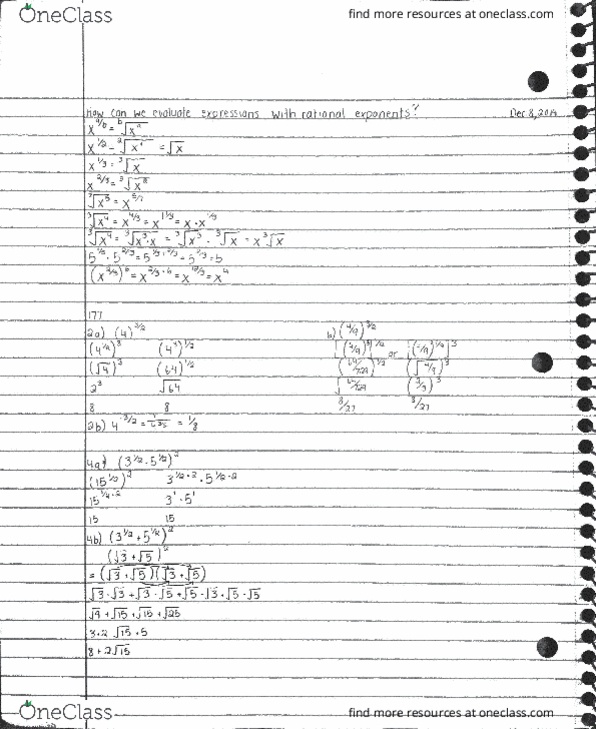 OneClass find more resources at oneclass.com
How can we evaluate expressions with rational exponents? Dec 8, 2014
x^(a/b) = ᵇ√(x^a)
x^(1/2) = ²√(x^1) = √x
x^(1/3) = ³√x
x^(2/3) = ³√(x^2)
x^(4/3) = x^(1 1/3) = x · x^(1/3)
³√(x^4) = ³√(x^3 · x) = ³√(x^3) · ³√x = x ³√x
5^(1/3) · 5^(2/3) = 5^(1/3 + 2/3) = 5^(3/3) = 5
177
2a) (4)^(3/2) b) (4/9)^(3/2)
(4^(1/2))^3 (4^3)^(1/2) or
(√4)^3 (64)^(1/2) (64/729)^(1/2) (√(4/9))^3
2^3 √64 √(64/729) (2/3)^3
8 8 8/27 8/27
2b) 4^(-3/2) = = 1/8
4a) (3^(1/2) · 5^(1/2))^2
(15^(1/2))^2 3^(1/2 · 2) · 5^(1/2 · 2)
15^(1/2 · 2) 3^1 · 5^1
15 15
4b) (3^(1/2) + 5^(1/2))^2
(√3 + √5)^2
= (√3 + √5)(√3 + √5)
√3 · √3 + √3 · √5 + √5 · √3 + √5 · √5
√9 + √15 + √15 + √25
3 + 2 √15 + 5
8 + 2√15
OneClass find more resources at oneclass.com